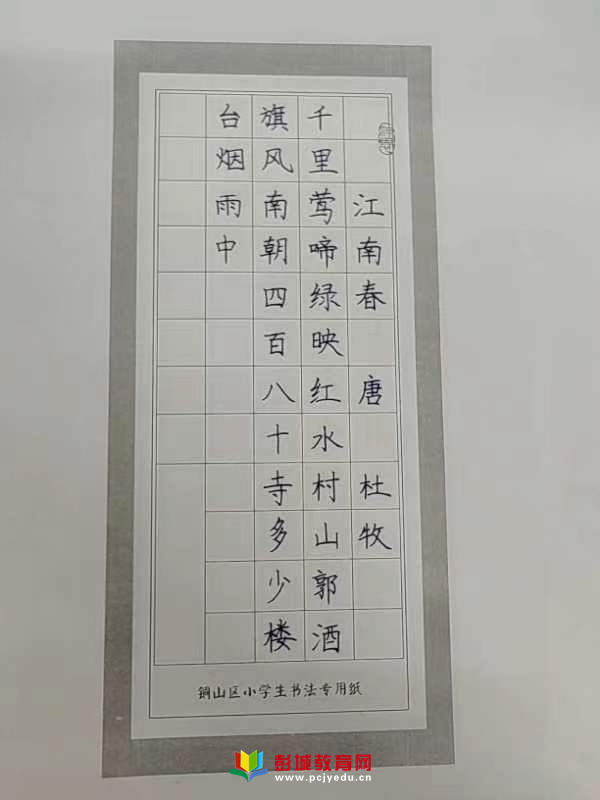 江南春 唐 杜牧
千里莺啼绿映红水村山郭酒
旗风南朝四百八十寺多少楼
台烟雨中
铜山区小学生书法专用纸
彭城教育网
www.pcjyedu.cn